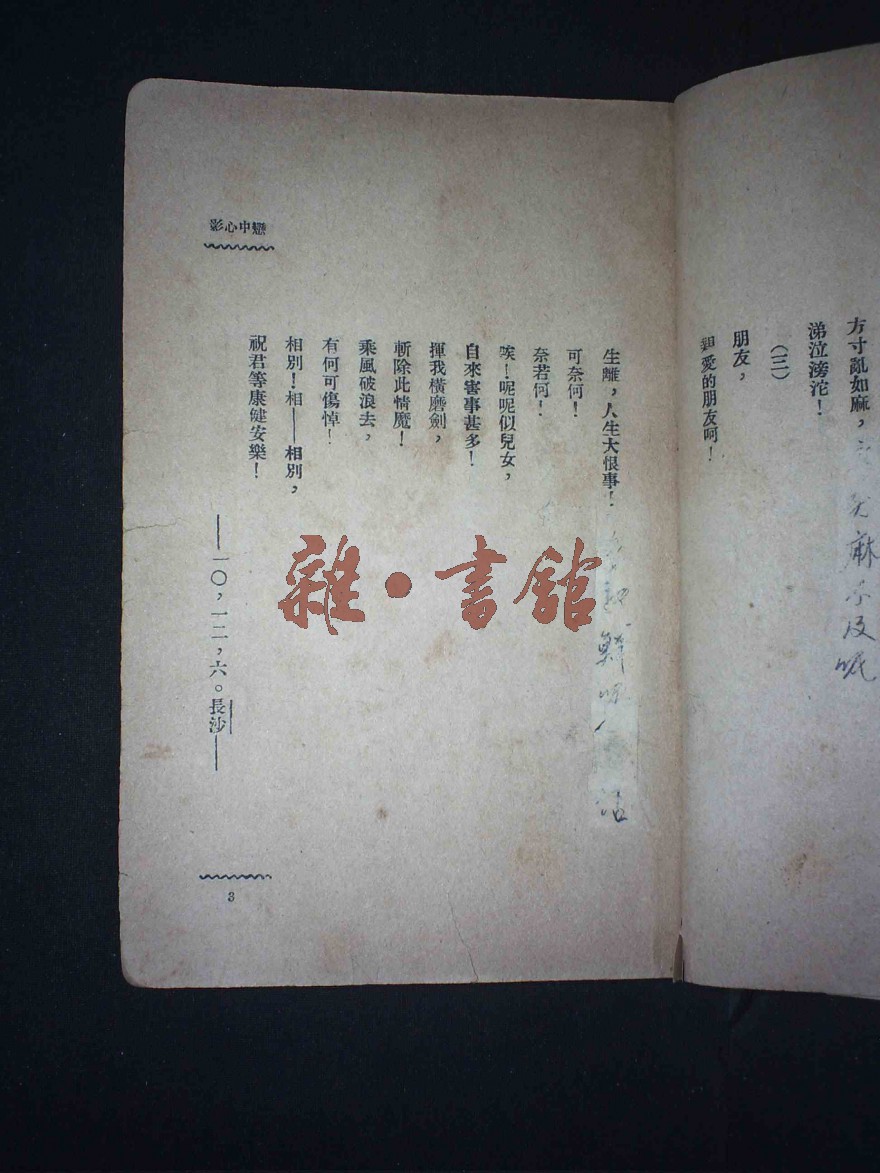 方寸亂如麻，
涕泣滂沱！
（三）
朋友，
親愛的朋友呵！
麻
及
呢
戀中心影
生離，人生大恨事！
可奈何！
奈若何！
唉！呢呢似兒女，
自來害事甚多！
揮我橫磨劍，
斬除此情魔！
乘風破浪去，
有何可傷悼！
相別！相——相別，
祝君等康健安樂！
——一〇，一二，六。長沙——
3
雜·書館